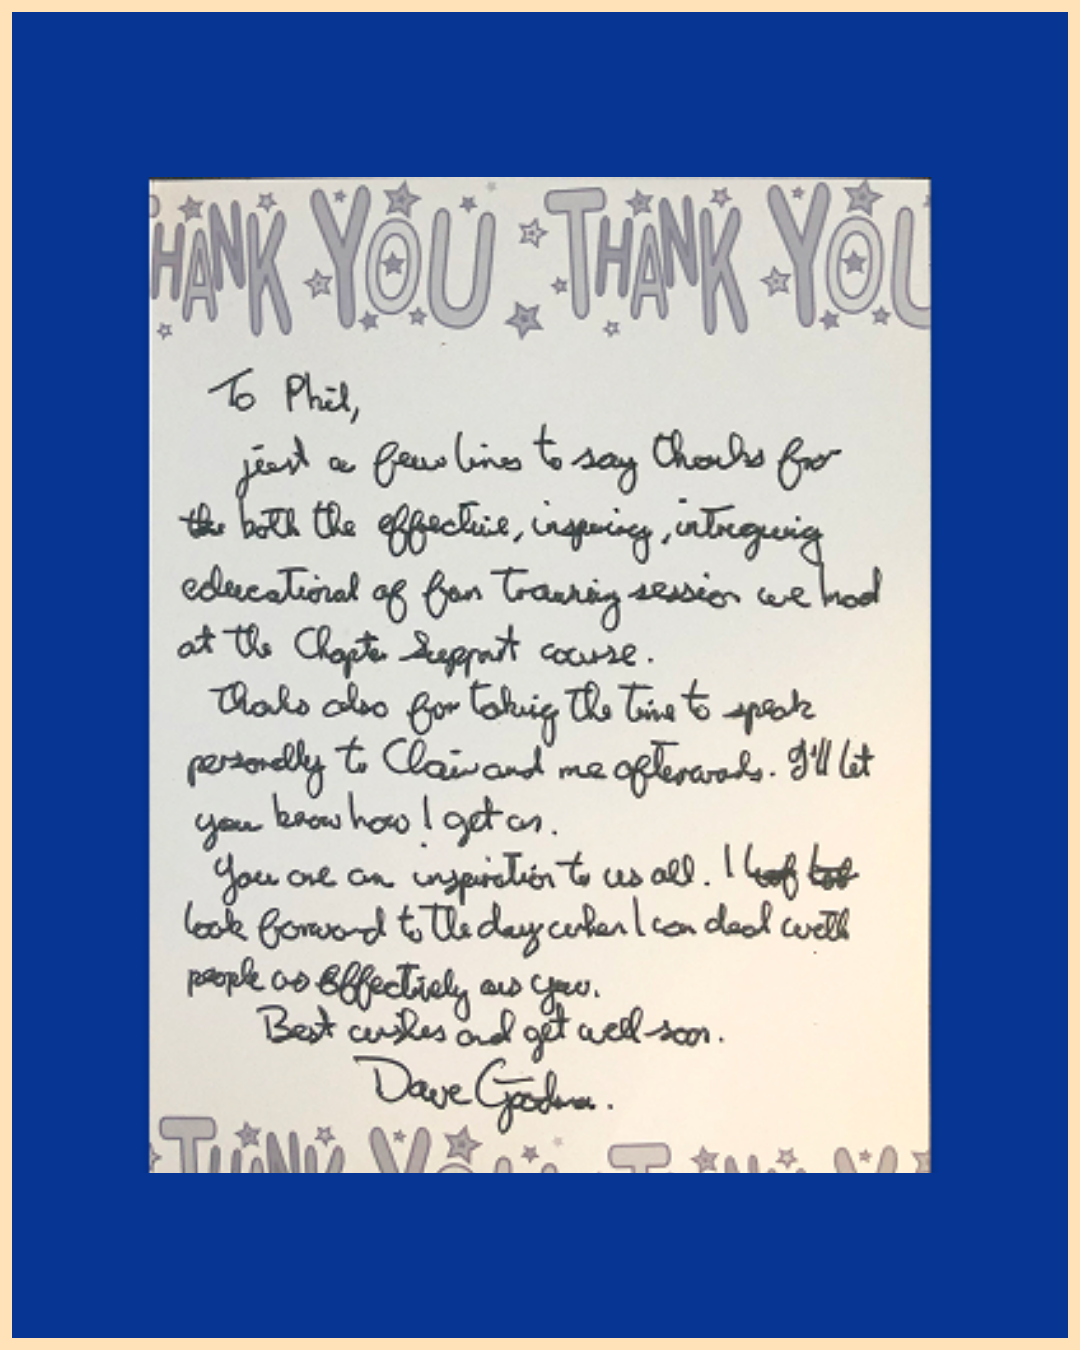 HANK YOU THANK YOU
To Phil,
just a few lines to say thanks for
the both the effective, inspiring, intriguing
educational of fun training session we had
at the Chapter Support course.
Thanks also for taking the time to speak
personally to Clair and me afterwards. I'll let
you know how I get on.
You are an inspiration to us all. I
look forward to the day when I can deal with
people as effectively as you.
Best wishes and get well soon.
Dave
THANK YOU T